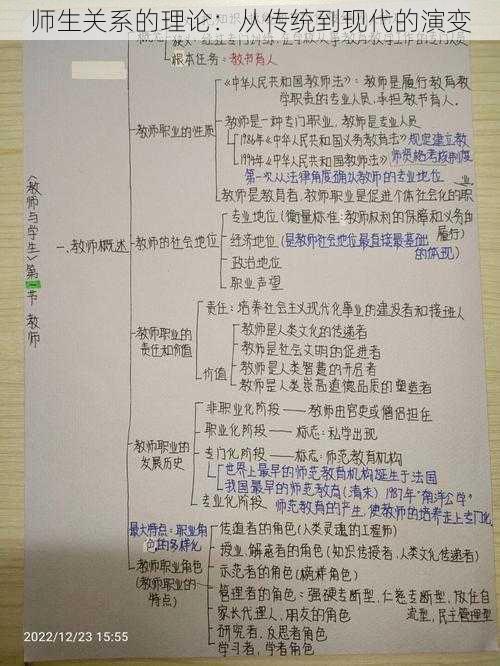 师生关系的理论：从传统到现代的演变
根本任务：教书育人
《中华人民共和国教师法》：教师是履行教育教
学职责的专业人员，承担教书育人。
教师职业的性质
教师是一种专门职业，教师是专业人员
1986年《中华人民共和国义务教育法》规定建立教
师资格考核制度
1994年《中华人民共和国教师法》
第一次从法律角度确认教师的专业地位
教师是教育者，教师职业是促进个体社会化的职
业
《教师与学生》第一节 教师
一、教师概述
教师的社会地位
专业地位（衡量标准：教师权利的保障和义务的
履行）
经济地位（是教师社会地位最直接最基础
的体现）
政治地位
职业声望
教师职业的
责任和价值
责任：培养社会主义现代化事业的建设者和接班人
价值
教师是人类文化的传递者
教师是社会文明的促进者
教师是人类智慧的开启者
教师是人类崇高道德品质的塑造者
教师职业的
发展历史
非职业化阶段——教师由官吏或僧侣担任
职业化阶段——标志：私学出现
专门化阶段——标志：师范教育机构
世界上最早的师范教育机构诞生于法国
我国最早的师范教育（清末）1987年“南洋公学”
专业化阶段
师范教育的产生，使教师的培养走上专门化
最大特点：职业角
色的多样化
教师职业角色
(教师职业的
特点)
传道者的角色（人类灵魂的工程师）
授业、解惑者的角色（知识传授者、人类文化传递者）
示范者的角色（榜样角色）
管理者的角色：强硬专断型，仁慈专断型，放任自
流型，民主管理型
家长代理人、朋友的角色
研究者、反思者角色
学习者、学者角色
2022/12/23 15:55